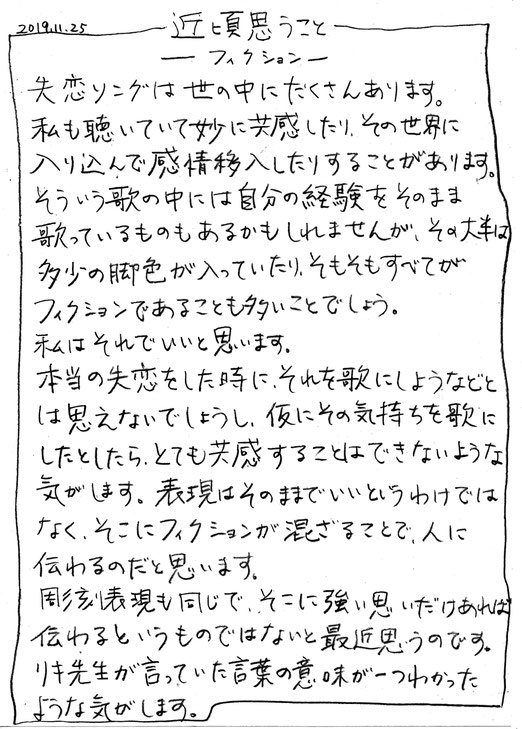 2019.11.25
近頃思うこと
―フィクション―
失恋ソングは世の中にたくさんあります。
私も聴いていて妙に共感したり、その世界に
入り込んで感情移入したりすることがあります。
そういう歌の中には自分の経験をそのまま
歌っているものもあるかもしれませんが、その大半は
多少の脚色が入っていたり、そもそもすべてが
フィクションであることも多いことでしょう。
私はそれでいいと思います。
本当の失恋をした時に、それを歌にしようなどと
は思えないでしょうし、仮にその気持ちを歌に
したとしたら、とても共感することはできないような
気がします。表現はそのままでいいというわけでは
なく、そこにフィクションが混ざることで、人に
伝わるのだと思います。
彫刻表現も同じで、そこに強い思いだけあれば
伝わるというものではないと最近思うのです。
リキ先生が言っていた言葉の意味が一つわかった
ような気がします。